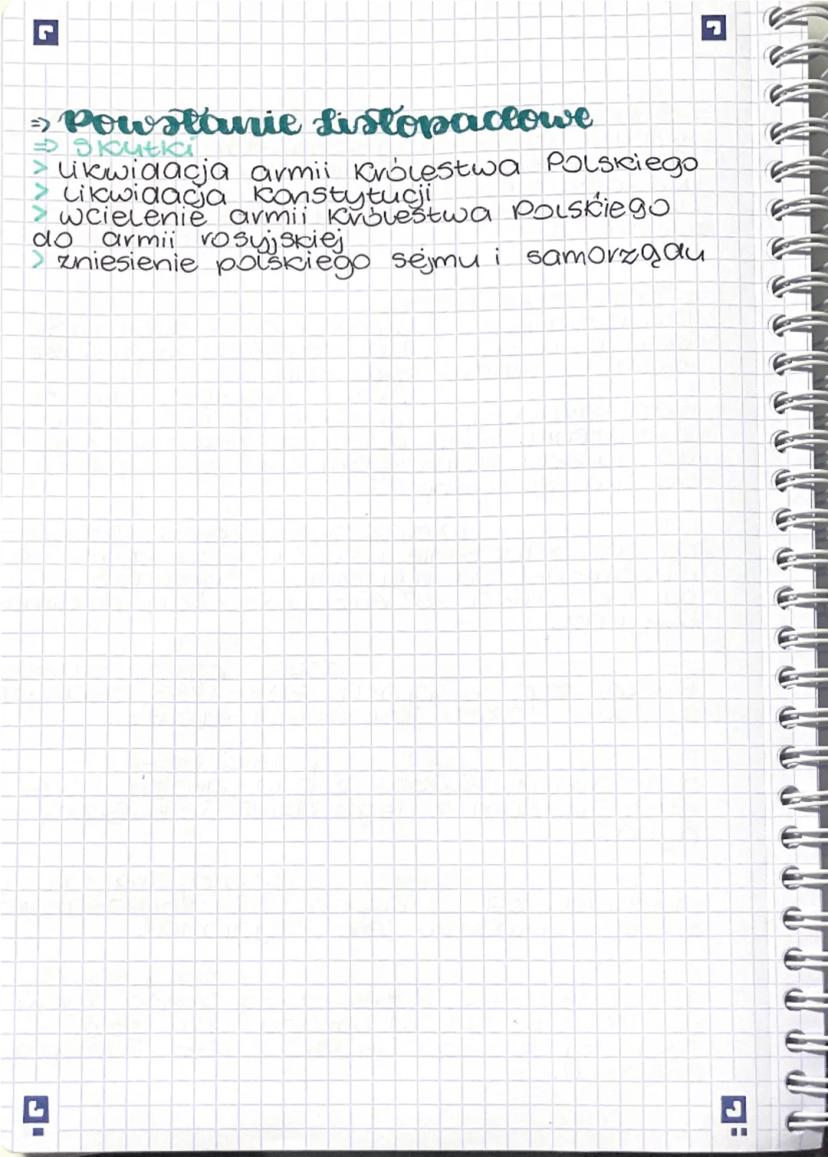 ⇒ Powstanie Listopadowe
⇒ skutki
> likwidacja armii Królestwa Polskiego
> likwidacja konstytucji
> wcielenie armii Królestwa Polskiego
do armii rosyjskiej
> zniesienie polskiego sejmu i samorządu